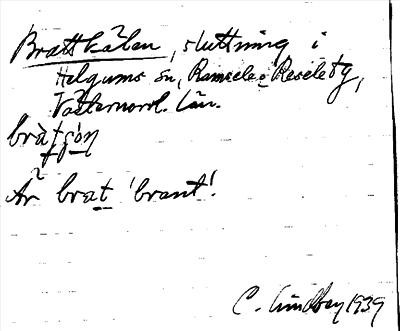 Brattkälen, sluttning i
Helgums sn, Ramsele o Resele tg,
Västernorrl. län.
Är brat 'brant'.
C. Lindberg 1939